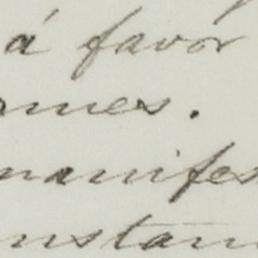 á favor
rmes.
manifes
nstan